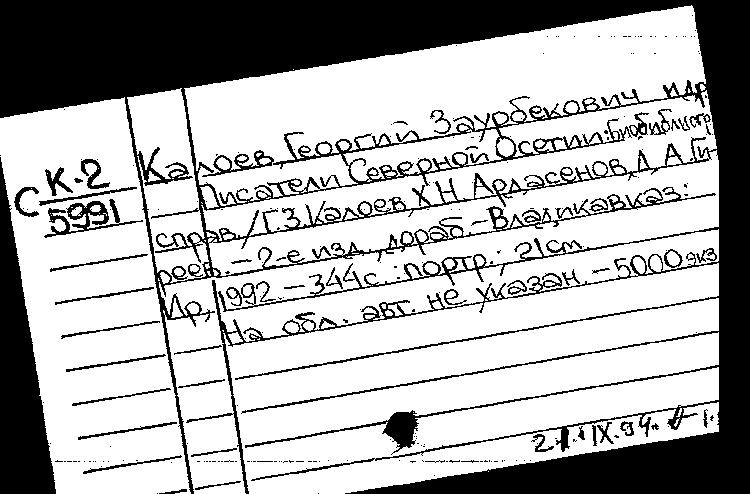 Калоев, Георгий Заурбекович и др.
С К-2
5991
Писатели Северной Осетии: Биобиблиогр.
справ. / Г.З. Калоев, Х.Н. Ардасенов, Л.А. Ги-
реев. – 2-е изд., дораб. – Владикавказ:
Ир, 1992. – 344с. : портр.; 21см.
На обл. авт. не указан. – 5000 экз
IX.94.